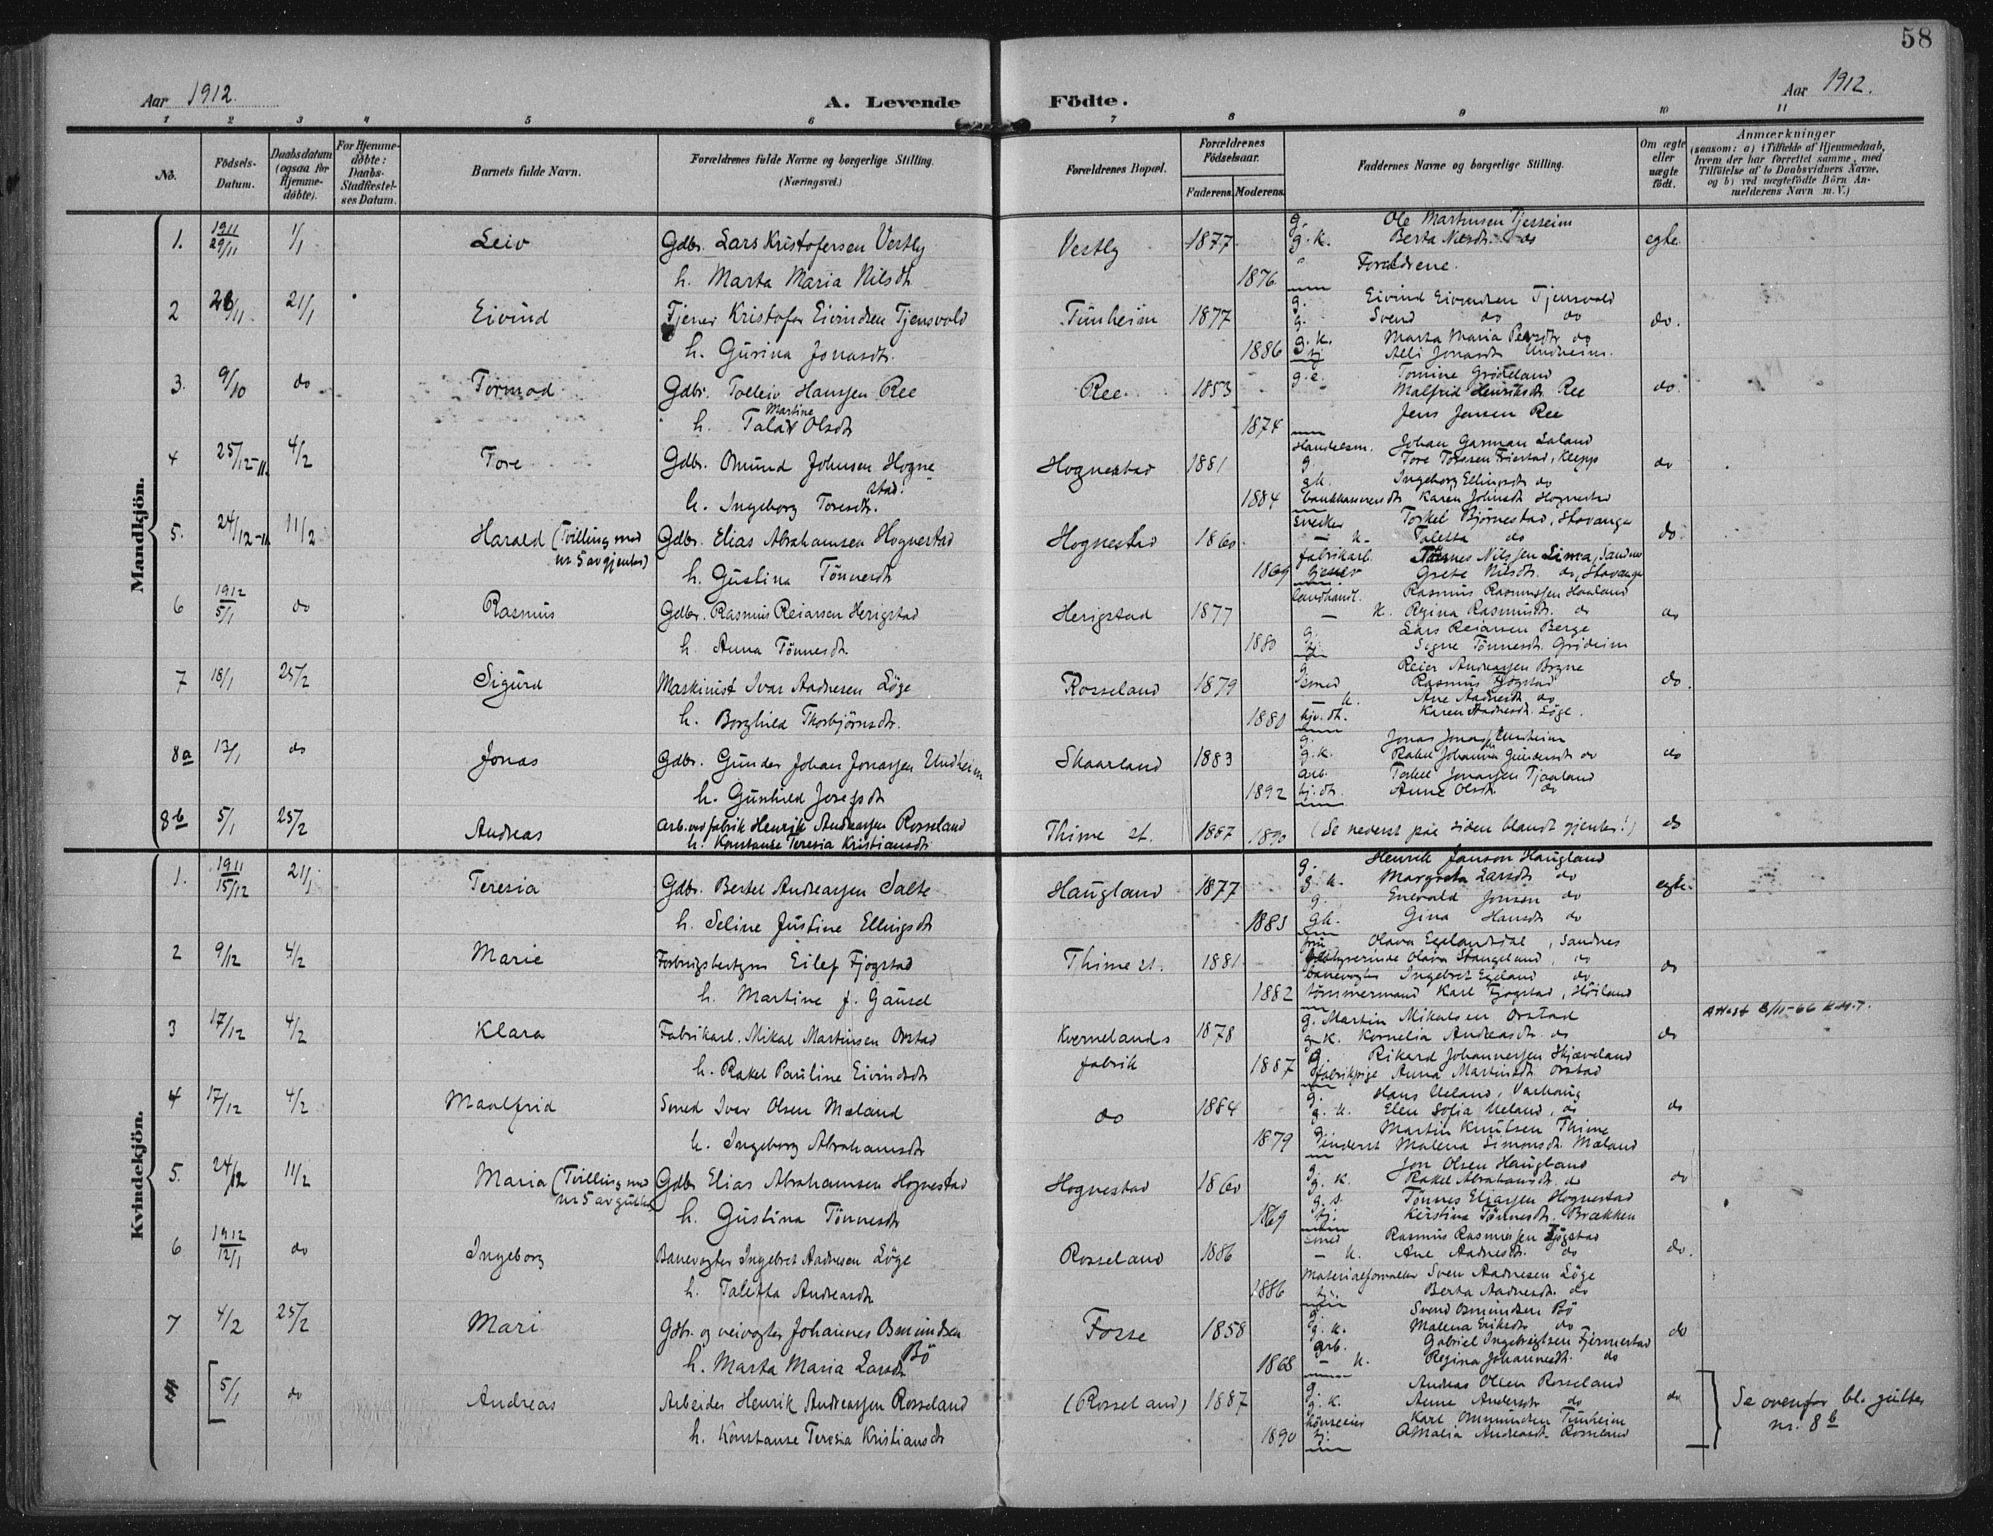 58
Aar 1912.
A. Levende Födte.
Aar 1912.
1 2 3 4 5 6 7 8 9 10 11
No.
Födsels-Datum.
Daabsdatum (ogsaa for Hjemme-döbte).
For Hjemme-döbte: Daabs-Stadfæstel-ses Datum.
Barnets fulde Navn.
Forældrenes fulde Navne og borgerlige Stilling. (Næringsvei.)
Forældrenes Bopæl.
Forældrenes Födselsaar.
Faderens. Moderens.
Faddernes Navne og borgerlige Stilling.
Om ægte eller uægte födt.
Anmærkninger
(saasom: a) i Tilfælde af Hjemmedaab, hvem der har forrettet samme, med Tilföielse af to Daabsvidners Navne, og b) ved uægtefödte Börn An-melderens Navn m. V.)
Mandkjön.
1. 1911 29/11 1/1 Leiv Gdbr. Lars Kristofersen Vestly Vestly 1877 g. Ole Martinsen Tjesseim egte
g. k. Berta Nilsdt. do
h. Marta Maria Nilsdt 1876 Forældrene.
2 28/11 21/1 Eivind Tjener Kristofer Eivindsen Tjensvold Tunheim 1877 g. Eivind Eivindsen Tjensvold do.
g. Svend do do
h. Gurina Jonasdt. 1886 g. k. Marta Maria Persdt do
tj. Alli Jonasdt Undheim.
3. 9/10 do Tormod Gdbr. Tolleiv Hanssen Ree Ree 1853 g. e. Tomine Gröteland do
Malfrid Henriksdt Ree
h. Talar Martine Olsdt 1874 Jens Jensen Ree
4 25/12-11. 4/2 Tore Gdbr. Omund Johnsen Hogne-stad. Hognestad 1881 Handelsm. Johan Garman Laland do
g. Tore Toressen Friestad, Klepp
gk. Ingeborg Ellingsdt do
h. Ingeborg Toresdt. 1884 Karen Johnsdt Hognestad
5. 24/12-11 11/2 Harald (Tvilling med nr. 5 av gjenter) Gdbr. Elias Abrahamsen Hognestad Hognestad 1860 Torkel Bjørnestad, Stavanger do.
– k. Taletta do
fabrikarb. Tønnes Nilssen Lima, Sandnes
h. Gustina Tønnesdt 1869 tjener Grete Nilsdt. do, Stavanger
6 1912 5/1 do Rasmus Gdbr. Rasmus Reiarsen Herigstad Herigstad 1877 landhandl. Rasmus Rasmussen Haaland do
– k. Regina Rasmusdt. do
g. Lars Reiarsen Berge
h. Anna Tønnesdt. 1880 Signe Tønnesdt. Grödeim
7 18/1 25/2 Sigurd Maskinist Ivar Aadnesen Löge Rosseland 1879 g. Reier Andreassen Bryne do.
smed Rasmus Fjogstad
– k. Ane Aadnesdt do
h. Borghild Thorbjörnsdt. 1880 hjv. dt. Karen Aadnesdt. Löge.
8a 13/1 do Jonas Gdbr. Gunder Johan Jonassen Undheim Skaarland 1883 g. Jonas Jonassen Unheim do
g. k. Rakel Johanna Gundersdt do
arb. Torkel Jonassen Tjaaland
h. Gunhild Josefsdt 1892 hj. dt. Anne Olsdt do
8b 5/1 25/2 Andreas Arb. ved fabrik Henrik Andreassen Rosseland Thime st. 1887 1890 (Se nederst paa siden blandt gjenter!) do
h. Konstanse Teresia Kristiansdt
Kvindekjön.
1. 1911 15/12 21/1 Teresia Gdbr. Bertel Andreassen Salte Haugland 1877 g. Henrik Janson Haugland egte.
g. k. Margreta Larsdt do
g. Enevald Jonsen do
h. Seline Justine Ellingsdt 1883 gk. Gina Hansdt do
2 9/12 4/2 Marie Forbrugsbestyrer Eilef Fjogstad Thime st. 1881 fru Olava Egelandsdal, Sandnes do
bestyrerinde Olava Stangeland, do
banevogter Ingebret Egeland do
h. Martine f. Gausel 1882 tömmermand Karl Fjogstad, Höiland
3 17/12 4/2 Klara Fabrikarb. Mikal Martinsen Orstad Kvernelands fabrik 1878 g. Martin Mikalsen Orstad do Attest 8/11-66
g. k. Kornelia Andreasdt do
g. Rikard Johannessen Skjæveland
h. Rakel Pauline Eivindsdt 1887 fabrikpige Anna Martinsdt Orstad
4 17/12 4/2 Maalfrid Smed Ivar Olsen Mæland do 1884 g. Hans Ueland, Varhaug do
g. k. Elen Sofia Ueland, do
g. Martin Knutsen Thime
h. Ingeborg Abrahamsdt 1879 Malena Simonsdt. Mæland
5. 24/12 11/2 Maria (Tvilling med nr. 5 av gutter) Gdbr Elias Abrahamsen Hognestad Hognestad 1860 g. Jon Olsen Haugland do
g. k. Rakel Abrahamsdt. do
g. s. Tönnes Eliassen Hognestad
h. Gustina Tönnesdt 1869 tj. Kirstina Tönnesdt. Brækken
6 1912 12/1 do Ingeborg Banevogter Ingebret Aadnesen Löge Rosseland 1886 smed Rasmus Rasmussen Fjogstad do.
– k. Ane Aadnesdt. do
Materialforvalter Sven Aadnesen Löge
h. Taletta Andreasdt 1886 tj. Berta Aadnesdt. do
7 4/2 25/2 Mari Gdbr. og veivogter Johannes Osmundsen Bö Fosse 1858 g. Svend Osmundsen Bö do
g. k. Malena Eriksdt. do
arb. Gabriel Ingebrigtsen Fjermestad
h. Marta Maria Larsdt 1868 – k. Regina Johannesdt. do
5/1 do Andreas Arbeider Henrik Andreassen Rosseland (Rosseland) 1887 g. Andreas Olsen Rosseland do Se ovenfor bl. gutter nr. 8b
g. k. Anne Andersdt do
hönseeier Karl Ommundsen Tunheim
h. Konstanse Teresia Kristiansdt 1890 tj. Amalia Andreasdt. Rosseland